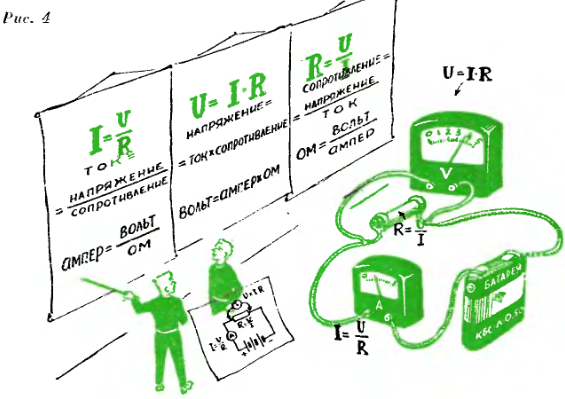 Рис. 4
I = U/R
ТОК =
= НАПРЯЖЕНИЕ/СОПРОТИВЛЕНИЕ
АМПЕР = ВОЛЬТ/ОМ
U = I·R
НАПРЯЖЕНИЕ =
= ТОК × СОПРОТИВЛЕНИЕ
ВОЛЬТ = АМПЕР × ОМ
R = U/I
СОПРОТИВЛЕНИЕ =
= НАПРЯЖЕНИЕ/ТОК
ОМ = ВОЛЬТ/АМПЕР
U = I·R
0 1 2 3 4 5
V
R = U/I
A
I = U/R
БАТАРЕЯ
КБС-Л 0,50
U=I·R
R=U/I
V
A
I=U/R
+
-